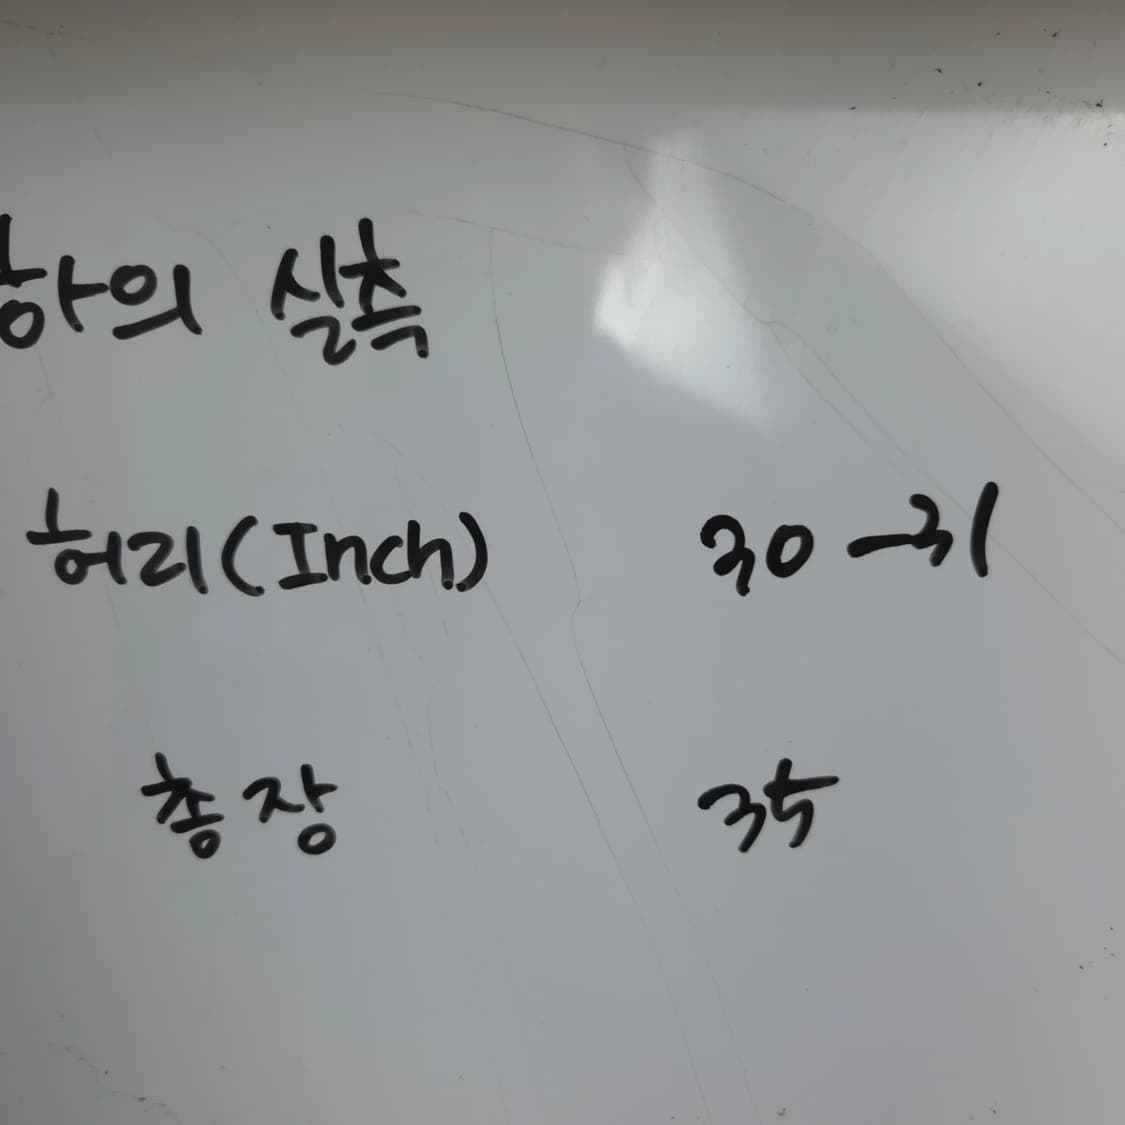 하의 실측
허리(Inch) 30-31
총장 35